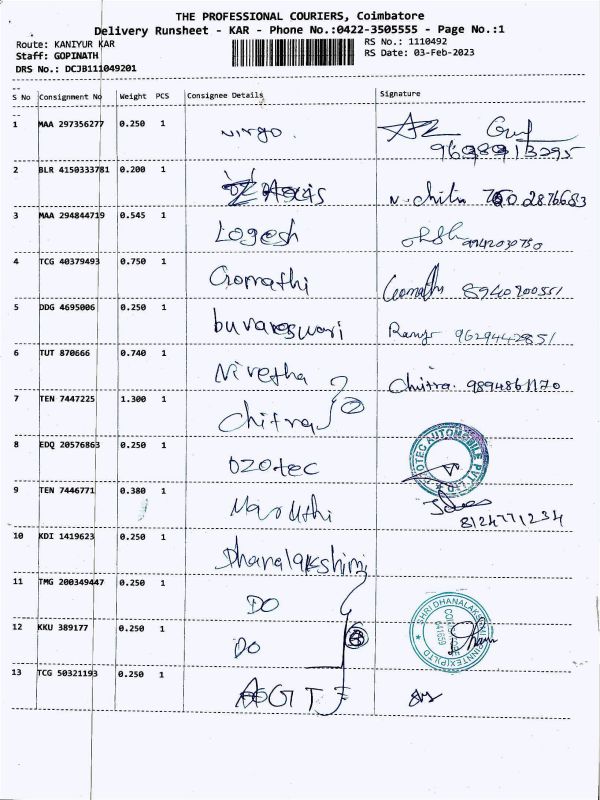 THE PROFESSIONAL COURIERS, Coimbatore
Delivery Runsheet - KAR - Phone No.:0422-3505555 - Page No.:1
Route: KANIYUR KAR RS No.: 1110492
Staff: GOPINATH RS Date: 03-Feb-2023
DRS No.: DCJB111049201
S No Consignment No Weight PCS Consignee Details Signature
1 MAA 297356277 0.250 1 virgo.
2 BLR 4150333781 0.200 1
3 MAA 294844719 0.545 1 Logesh
4 TCG 40379493 0.750 1 Gomathi Gomathi 8940900551
5 DDG 4695006 0.250 1 buvaneswari 9629442851
6 TUT 870666 0.740 1 Nivetha Chitra. 9894861170
7 TEN 7447225 1.300 1 Chitra 2
8 EDQ 20576863 0.250 1 OZOTEC OTEC AUTOMOBILE PVT LTD
9 TEN 7446771 0.380 1 Maruthi 8124771234
10 KDI 1419623 0.250 1 Dhanalakshimi
11 TMG 200349447 0.250 1 DO
12 KKU 389177 0.250 1 DO 3 SHRI DHANALAKSHMI SPINNTEX (P) LTD 641659
13 TCG 50321193 0.250 1 AGT